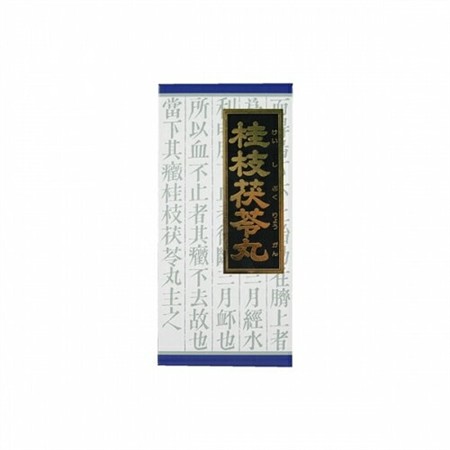 桂枝茯苓丸
けい し ぶく りょう がん
在臍上者
三月經水
三月衃也
所以血不止者其癥不去故也
當下其癥桂枝茯苓丸主之